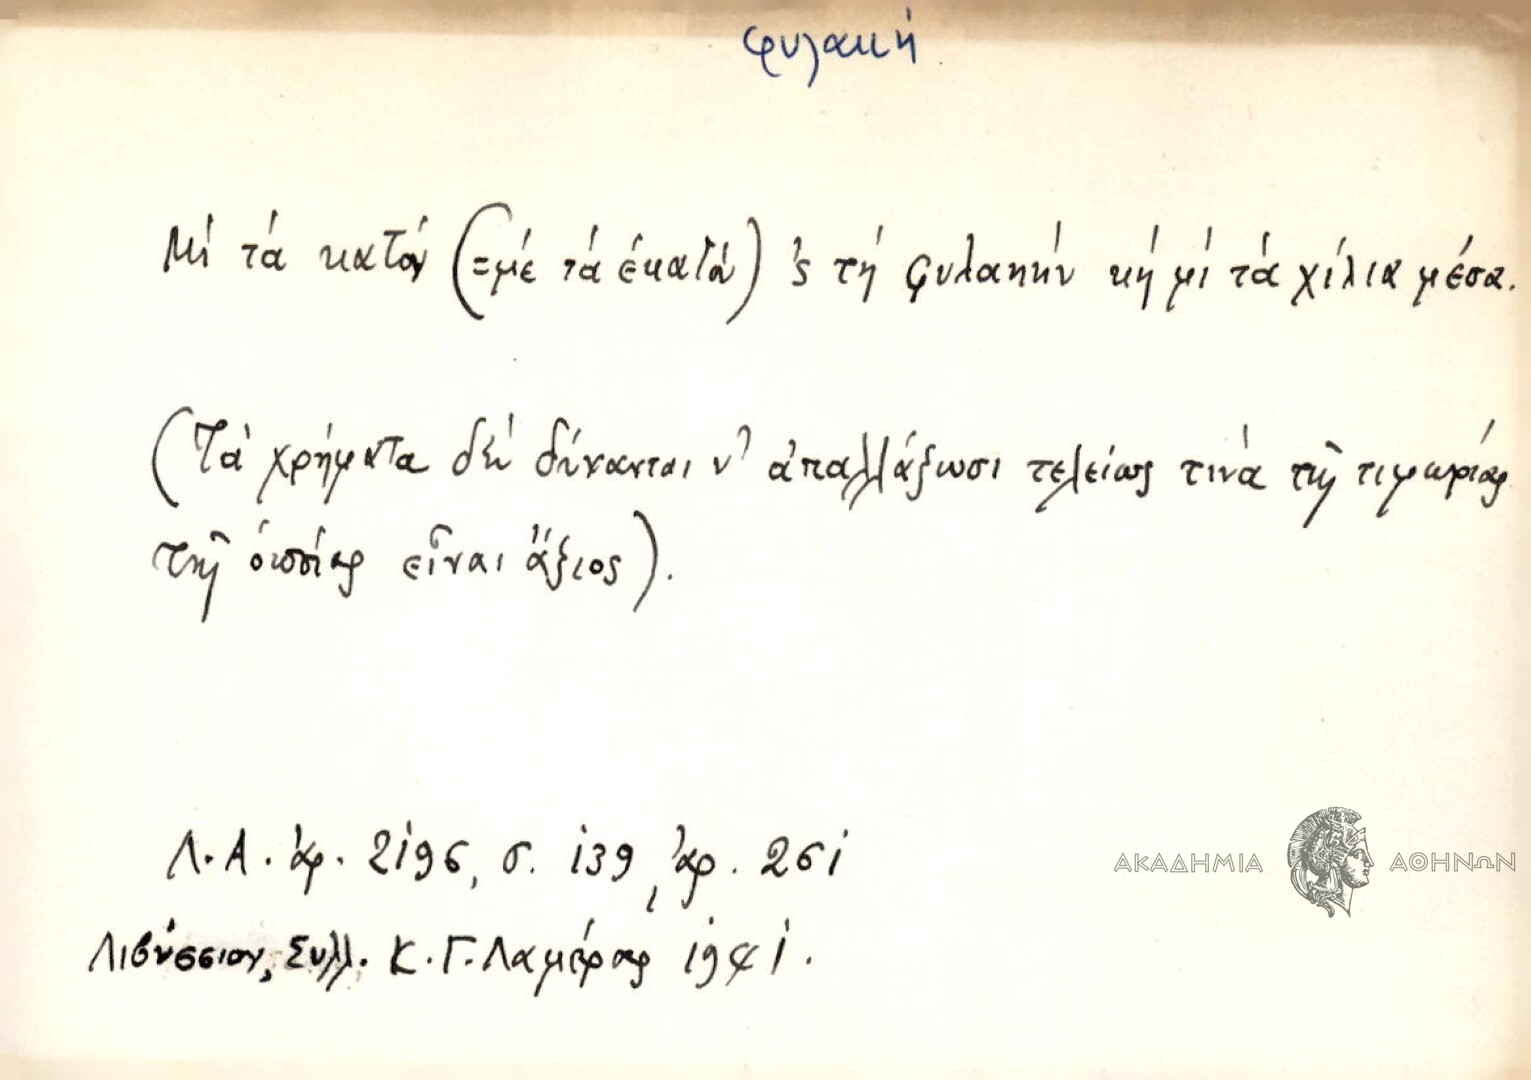 φυλακή
Μί τά κατόν (=μέ τά ἑκατόν) 'ς τή φυλακήν κή μί τά χίλια μέσα.
(Τά χρήματα δέν δύνανται ν' ἀπαλλάξωσι τελείως τινά τῆς τιμωρίας
τῆς ὁποίας εἶναι ἄξιος).
Λ.Α. ἀρ. 2196, σ. 139, ἀρ. 261
Λιβύσσιον, Συλλ. Κ.Γ. Λαμέρας 1941.
ΑΚΑΔΗΜΙΑ ΑΘΗΝΩΝ